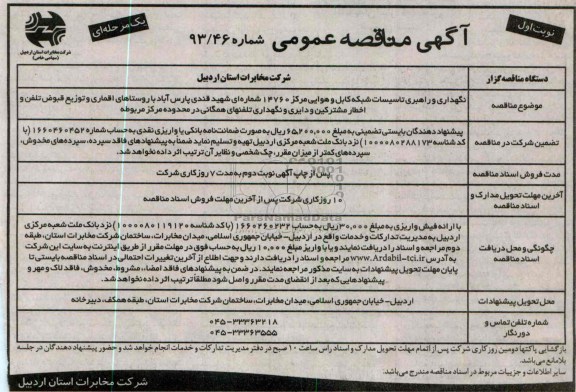 نوبت اول
آگهی مناقصه عمومی شماره ۹۳/۴۶
یک مرحله‌ای
شرکت مخابرات استان اردبیل
(سهامی خاص)
دستگاه مناقصه گزار
شرکت مخابرات استان اردبیل
موضوع مناقصه
نگهداری و راهبری تاسیسات شبکه کابل و هوایی مرکز ۱۴۷۶۰ شماره ای شهید قندی پارس آباد با روستاهای اقماری و توزیع قبوض تلفن و
اخطار مشترکین و دایری و نگهداری تلفنهای همگانی در محدوده مرکز مربوطه
تضمین شرکت در مناقصه
پیشنهاد دهندگان بایستی تضمینی به مبلغ ۶۵,۲۰۰,۰۰۰ ریال به صورت ضمانت‌نامه بانکی یا واریزی نقدی به حساب شماره ۱۶۶۰۴۶۰۴۵۲ (با
کد شناسه ۱۰۰۰۰۰۸۰۲۸۸۱۷۳) نزد بانک ملت شعبه مرکزی اردبیل تهیه و تسلیم نماید ضمناً به پیشنهادهای فاقد سپرده، سپرده‌های مخدوش،
سپرده‌های کمتر از میزان مقرر، چک شخصی و نظایر آن ترتیب اثر داده نخواهد شد.
مدت فروش اسناد مناقصه
پس از چاپ آگهی نوبت دوم به مدت ۷ روز کاری شرکت
آخرین مهلت تحویل مدارک و
اسناد مناقصه
۱۰ روز کاری شرکت پس از آخرین مهلت فروش اسناد مناقصه
ParsNamadData
چگونگی و محل دریافت
اسناد مناقصه
با ارائه فیش واریزی به مبلغ ۳۰,۰۰۰ ریال به حساب ۱۶۶۰۲۶۰۲۳۲ (با کد شناسه ۱۰۰۰۰۰۸۰۱۱۹۱۲۰) نزد بانک ملت شعبه مرکزی
اردبیل به مدیریت تدارکات و خدمات واقع در اردبیل- خیابان جمهوری اسلامی، میدان مخابرات، ساختمان شرکت مخابرات استان، طبقه
دوم مراجعه و اسناد را دریافت نمایند و یا با واریز مبلغ ۱۰,۰۰۰ ریال به حساب فوق در مهلت مقرر از طریق اینترنت به سایت این شرکت
به آدرس www.Ardabil-tci.ir مراجعه و اسناد را دریافت دارند و جهت اطلاع از آخرین تغییرات احتمالی در اسناد مناقصه بایستی تا
پایان مهلت تحویل پیشنهادات به سایت مذکور مراجعه نمایند. در ضمن به پیشنهادهای فاقد امضاء، مشروط، مخدوش، فاقد لاک و مهر و
پیشنهادهایی که بعد از انقضای مدت مقرر واصل شود مطلقاً ترتیب اثر داده نخواهد شد.
محل تحویل پیشنهادات
اردبیل- خیابان جمهوری اسلامی، میدان مخابرات، ساختمان شرکت مخابرات استان، طبقه همکف، دبیرخانه
شماره تلفن تماس و
دورنگار
۰۴۵-۳۳۳۶۳۲۱۸
۰۴۵-۳۳۳۶۳۵۵۵
بازگشایی پاکتها دومین روز کاری شرکت پس از اتمام مهلت تحویل مدارک و اسناد راس ساعت ۱۰ صبح در دفتر مدیریت تدارکات و خدمات انجام خواهد شد و حضور پیشنهاد دهندگان در جلسه
بلامانع می‌باشد.
سایر اطلاعات و جزییات مربوط در اسناد مناقصه مندرج می‌باشد.
شرکت مخابرات استان اردبیل